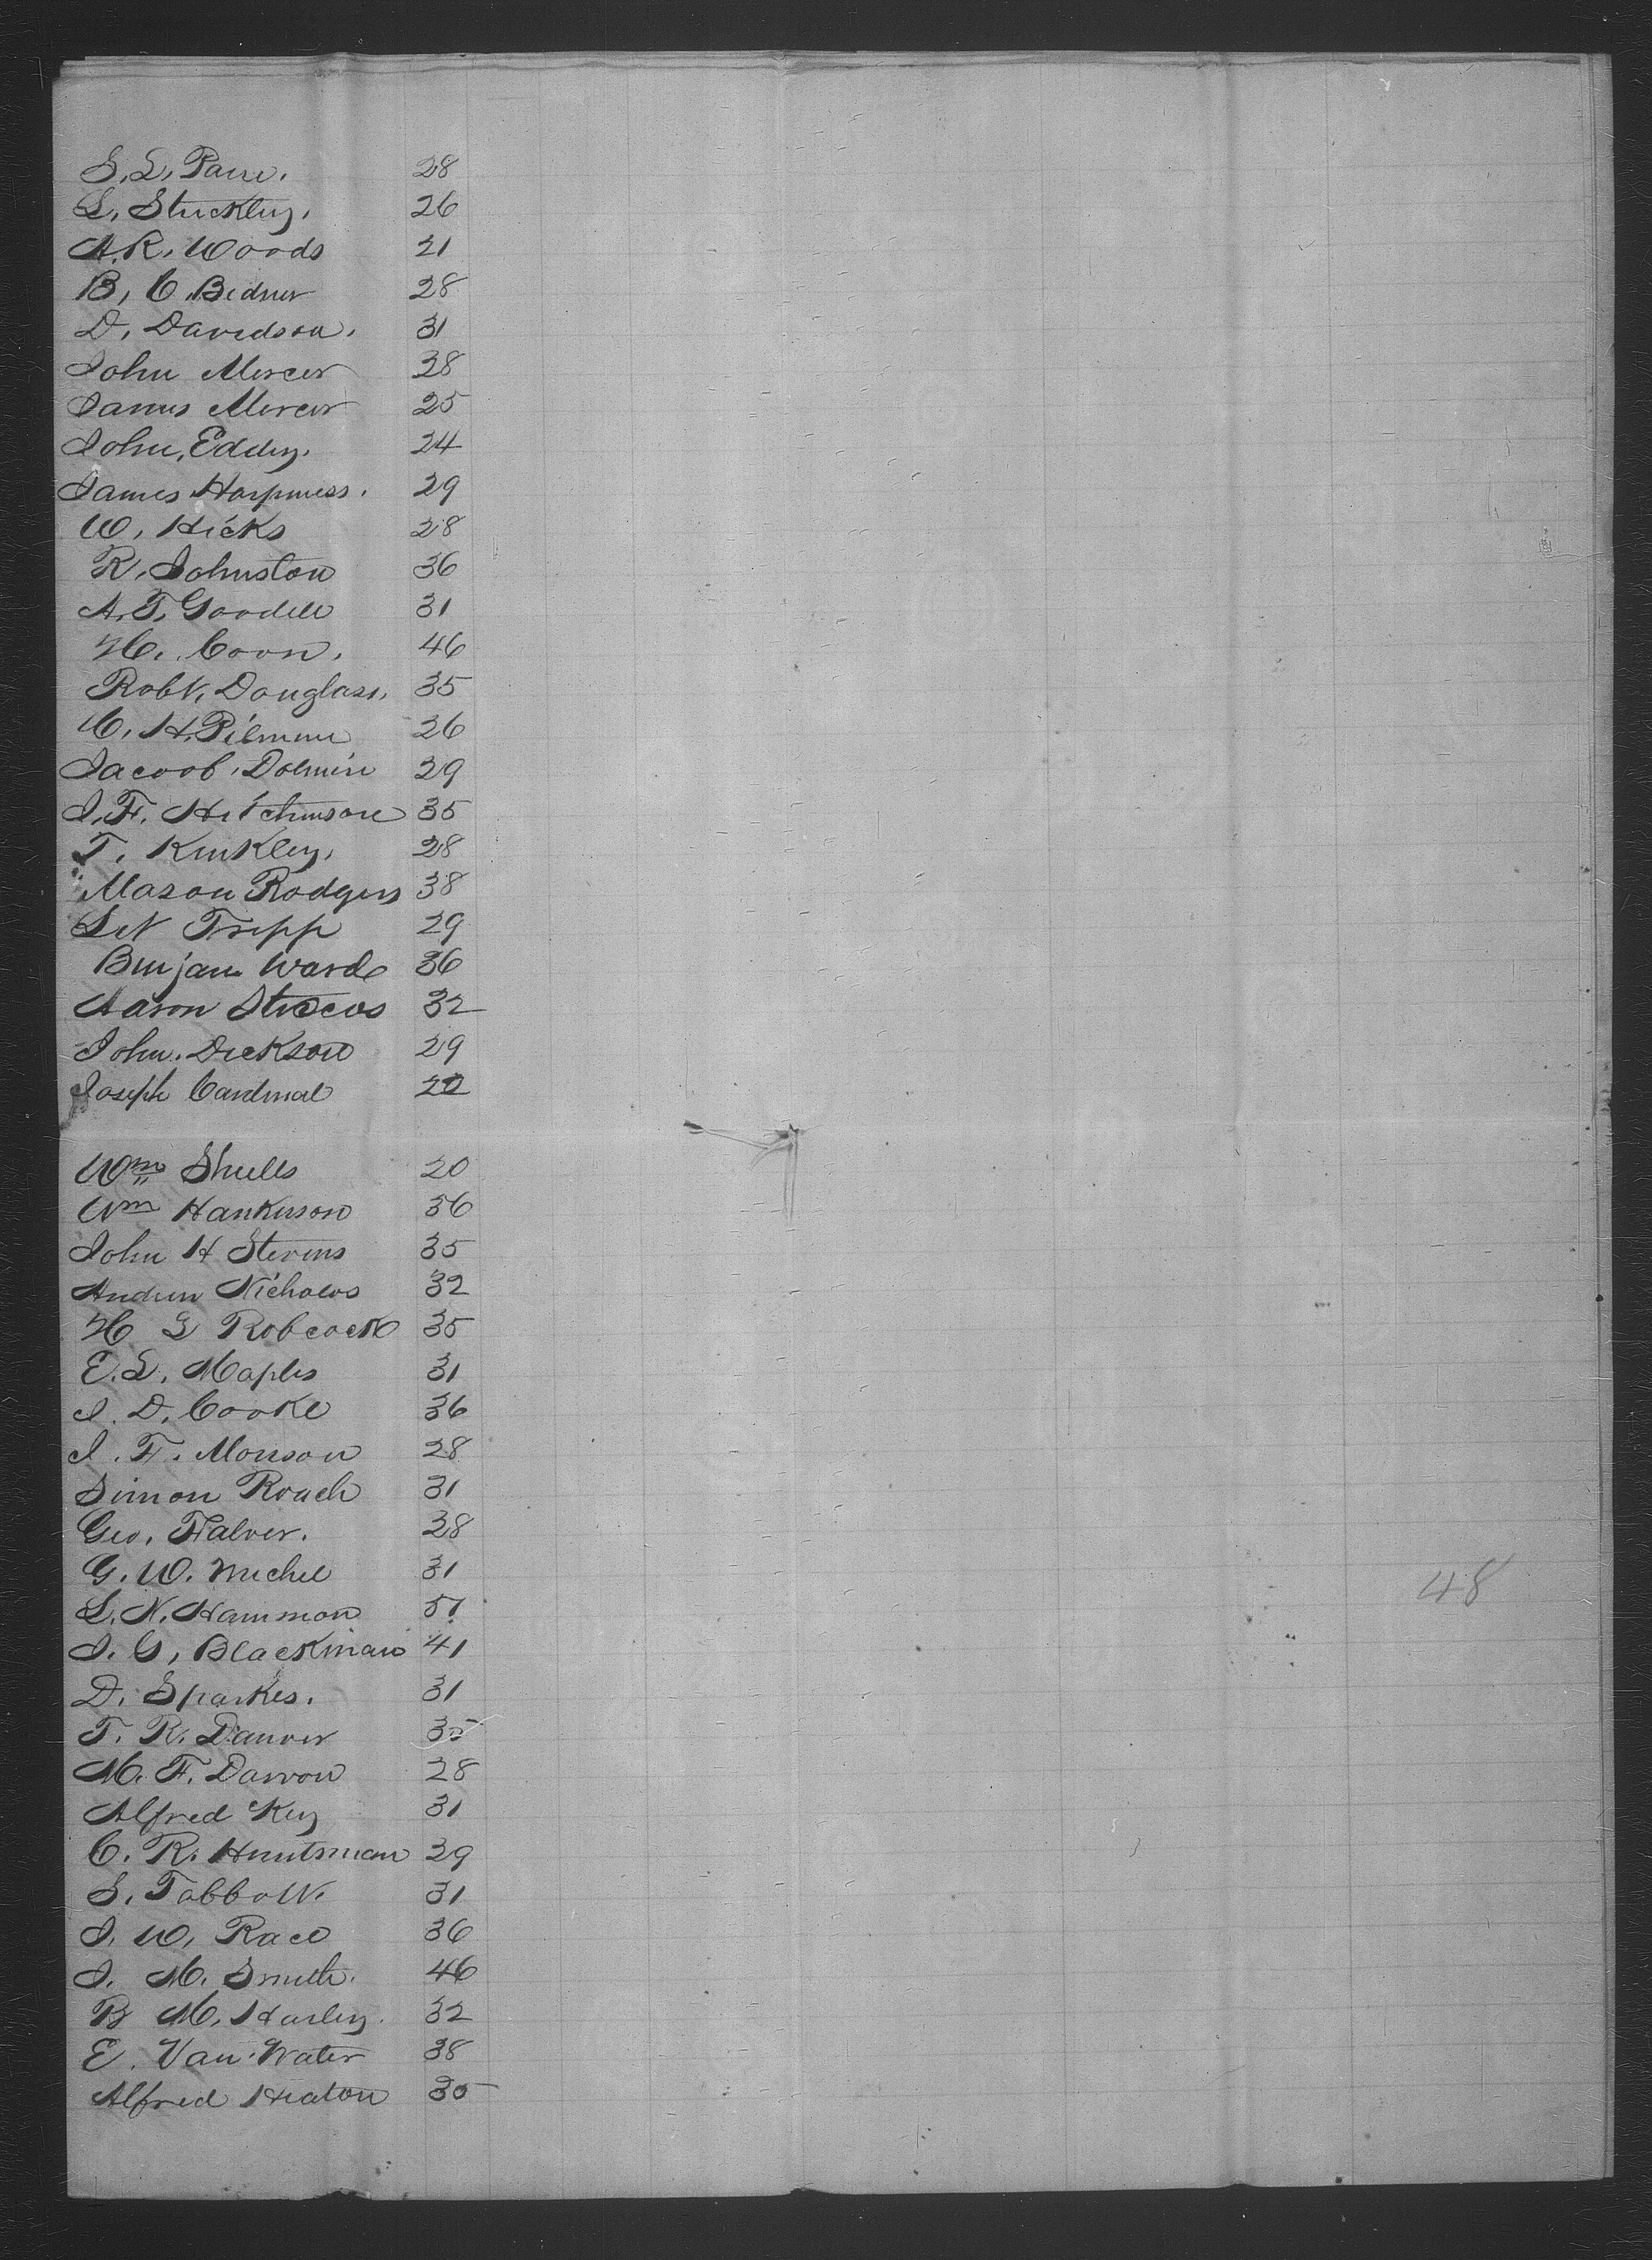 S. L. Parre. 28
L. Stuckley. 26
A. R. Woods 21
B, C, Bidner 28
D, Davidson. 31
John Mercer 38
James Mercer 25
John, Eddy. 24
James Harpness. 29
W, Hicks 28
R, Johnston 36
A. T, Goodell 31
H. Coon, 46
Robt, Douglass, 35
C, H, Pilmur 26
Jacoob, Dolmin 29
J. F. Hitchinson 35
T, Kinkley, 28
Mason Rodgers 38
Set Tripp 29
Benjam Ward 36
Aaron 32
John. Dickson 29
Joseph Cardinal
Wm Shells 20
Wm Hankinson 36
John H Stevens 35
Andrew Nichols 32
H L Robcock 35
E. L. Maples 31
J. D, Cooke 36
J. F. Monson 28
Simon Roach 31
Geo, Falver. 28
G. W. Michel 31
L. N. Hammon 51
J. G, Blackman 41
D. Sparkes. 31
T. R. Danver 35
M. F. Darvon 28
Alfred Key 31
C. R. Huntsman 29
S. Tabbott. 31
J, W, Race 36
J. M. Smith. 46
B M, Harley. 32
E. Van Water 38
Alfred Heaton 35
48